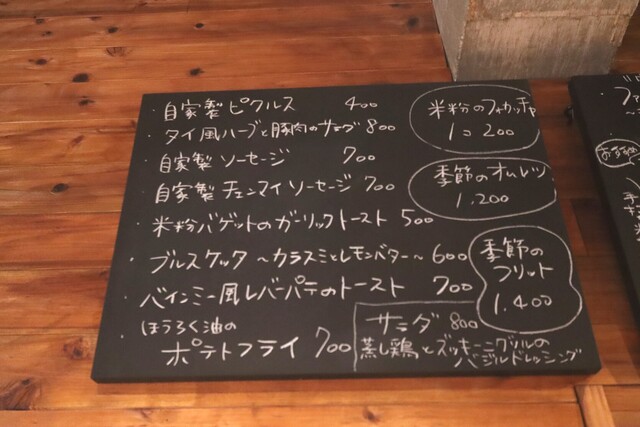 ・自家製ピクルス 400
・タイ風ハーブと豚肉のサラダ 800
・自家製 ソーセージ 700
・自家製 チェンマイ ソーセージ 700
・米粉バゲットのガーリックトースト 500
・ブルスケッタ ～カラスミとレモンバター～ 600
・バインミー風レバーパテのトースト 700
・ほうろく油の
ポテトフライ 700
米粉のフォカッチャ
1コ 200
季節のオムレツ
1,200
季節の
フリット
1,400
サラダ 800
蒸し鶏とズッキーニグリルの
バジルドレッシング
おすすめ